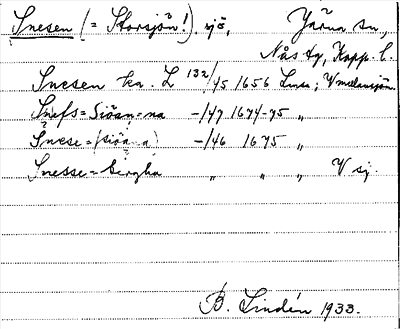 Snesen (= Storsjön!), sjö, Järna sn,
Nås hg, Kopp. l.
Snesen ka. L 132/45 1656 Linse; V melansjön
Snefs=Siöan-na -/47 1674-75 „
Snese=(siöa-a) -/46 1675 „
Snesse=bergha „ „ „ V sj.
B. Lindén 1933.